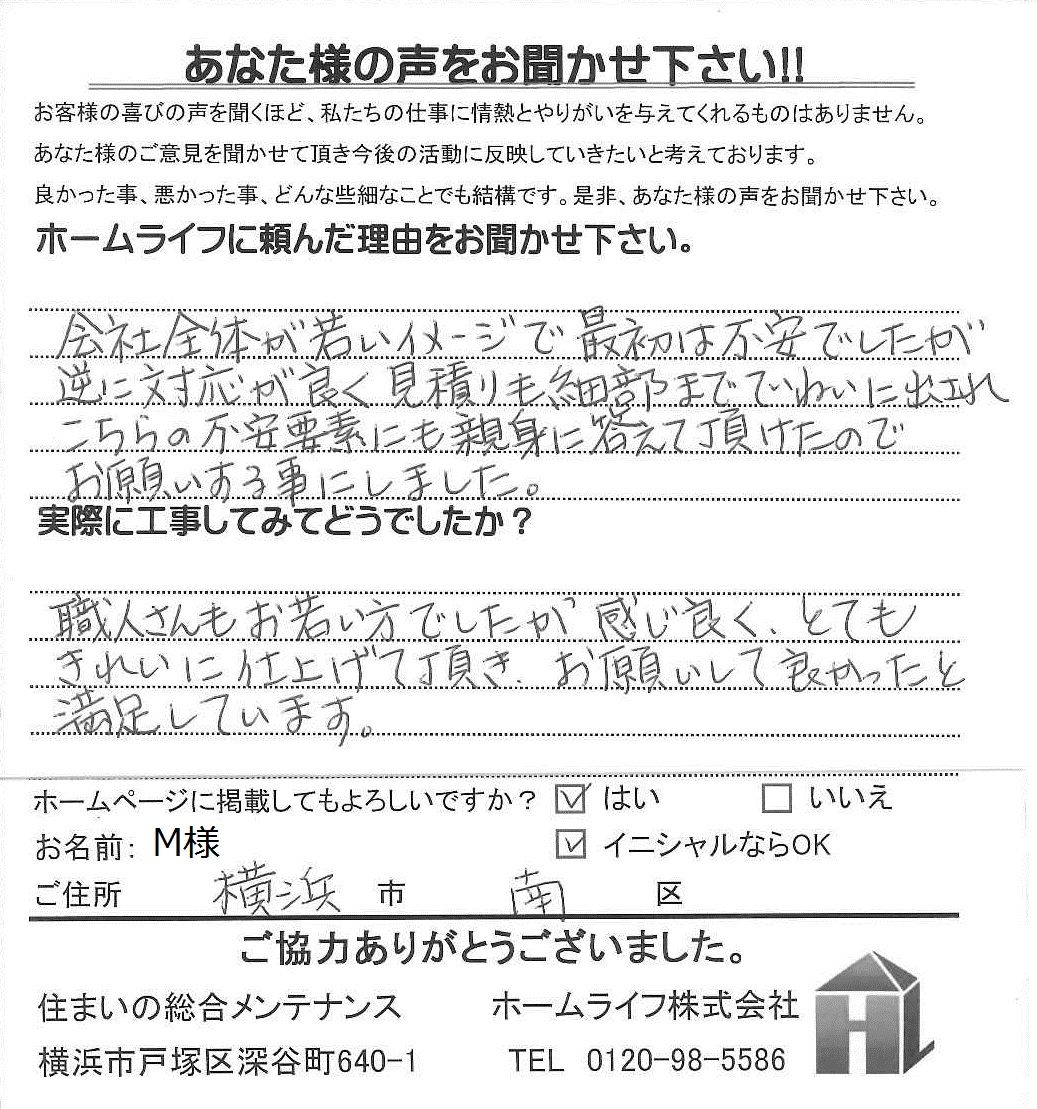 あなた様の声をお聞かせ下さい!!
お客様の喜びの声を聞くほど、私たちの仕事に情熱とやりがいを与えてくれるものはありません。
あなた様のご意見を聞かせて頂き今後の活動に反映していきたいと考えております。
良かった事、悪かった事、どんな些細なことでも結構です。是非、あなた様の声をお聞かせ下さい。
ホームライフに頼んだ理由をお聞かせ下さい。
会社全体が若いイメージで最初は不安でしたが
逆に対応が良く見積りも細部までていねいに出され
こちらの不安要素にも親身に答えて頂けたので
お願いする事にしました。
実際に工事してみてどうでしたか?
職人さんもお若い方でしたが感じ良く、とても
きれいに仕上げて頂き、お願いして良かったと
満足しています。
ホームページに掲載してもよろしいですか? ☑ はい □ いいえ
お名前: M様 ☑ イニシャルならOK
ご住所 横浜 市 南 区
ご協力ありがとうございました。
住まいの総合メンテナンス ホームライフ株式会社
横浜市戸塚区深谷町640-1 TEL 0120-98-5586
HL